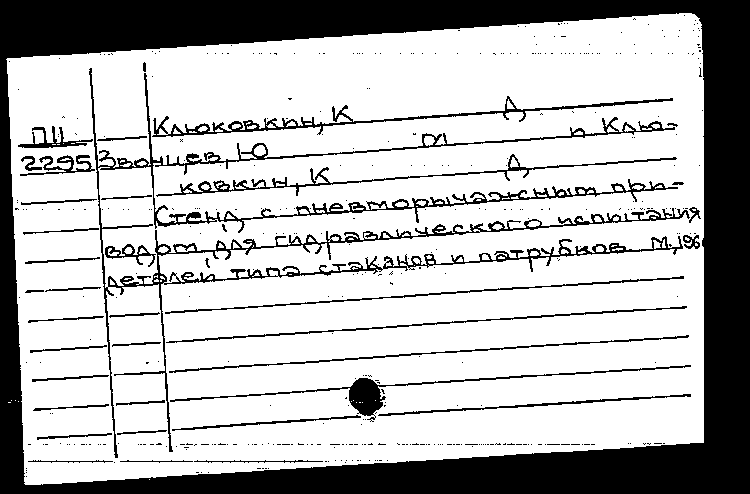 Клюковкин, К Д
П11
2295 Звонцев, Ю М и Клю-
ковкин, К Д
Стенд с пневморычажным при-
водом для гидравлического испытания
деталей типа стаканов и патрубков М, 196